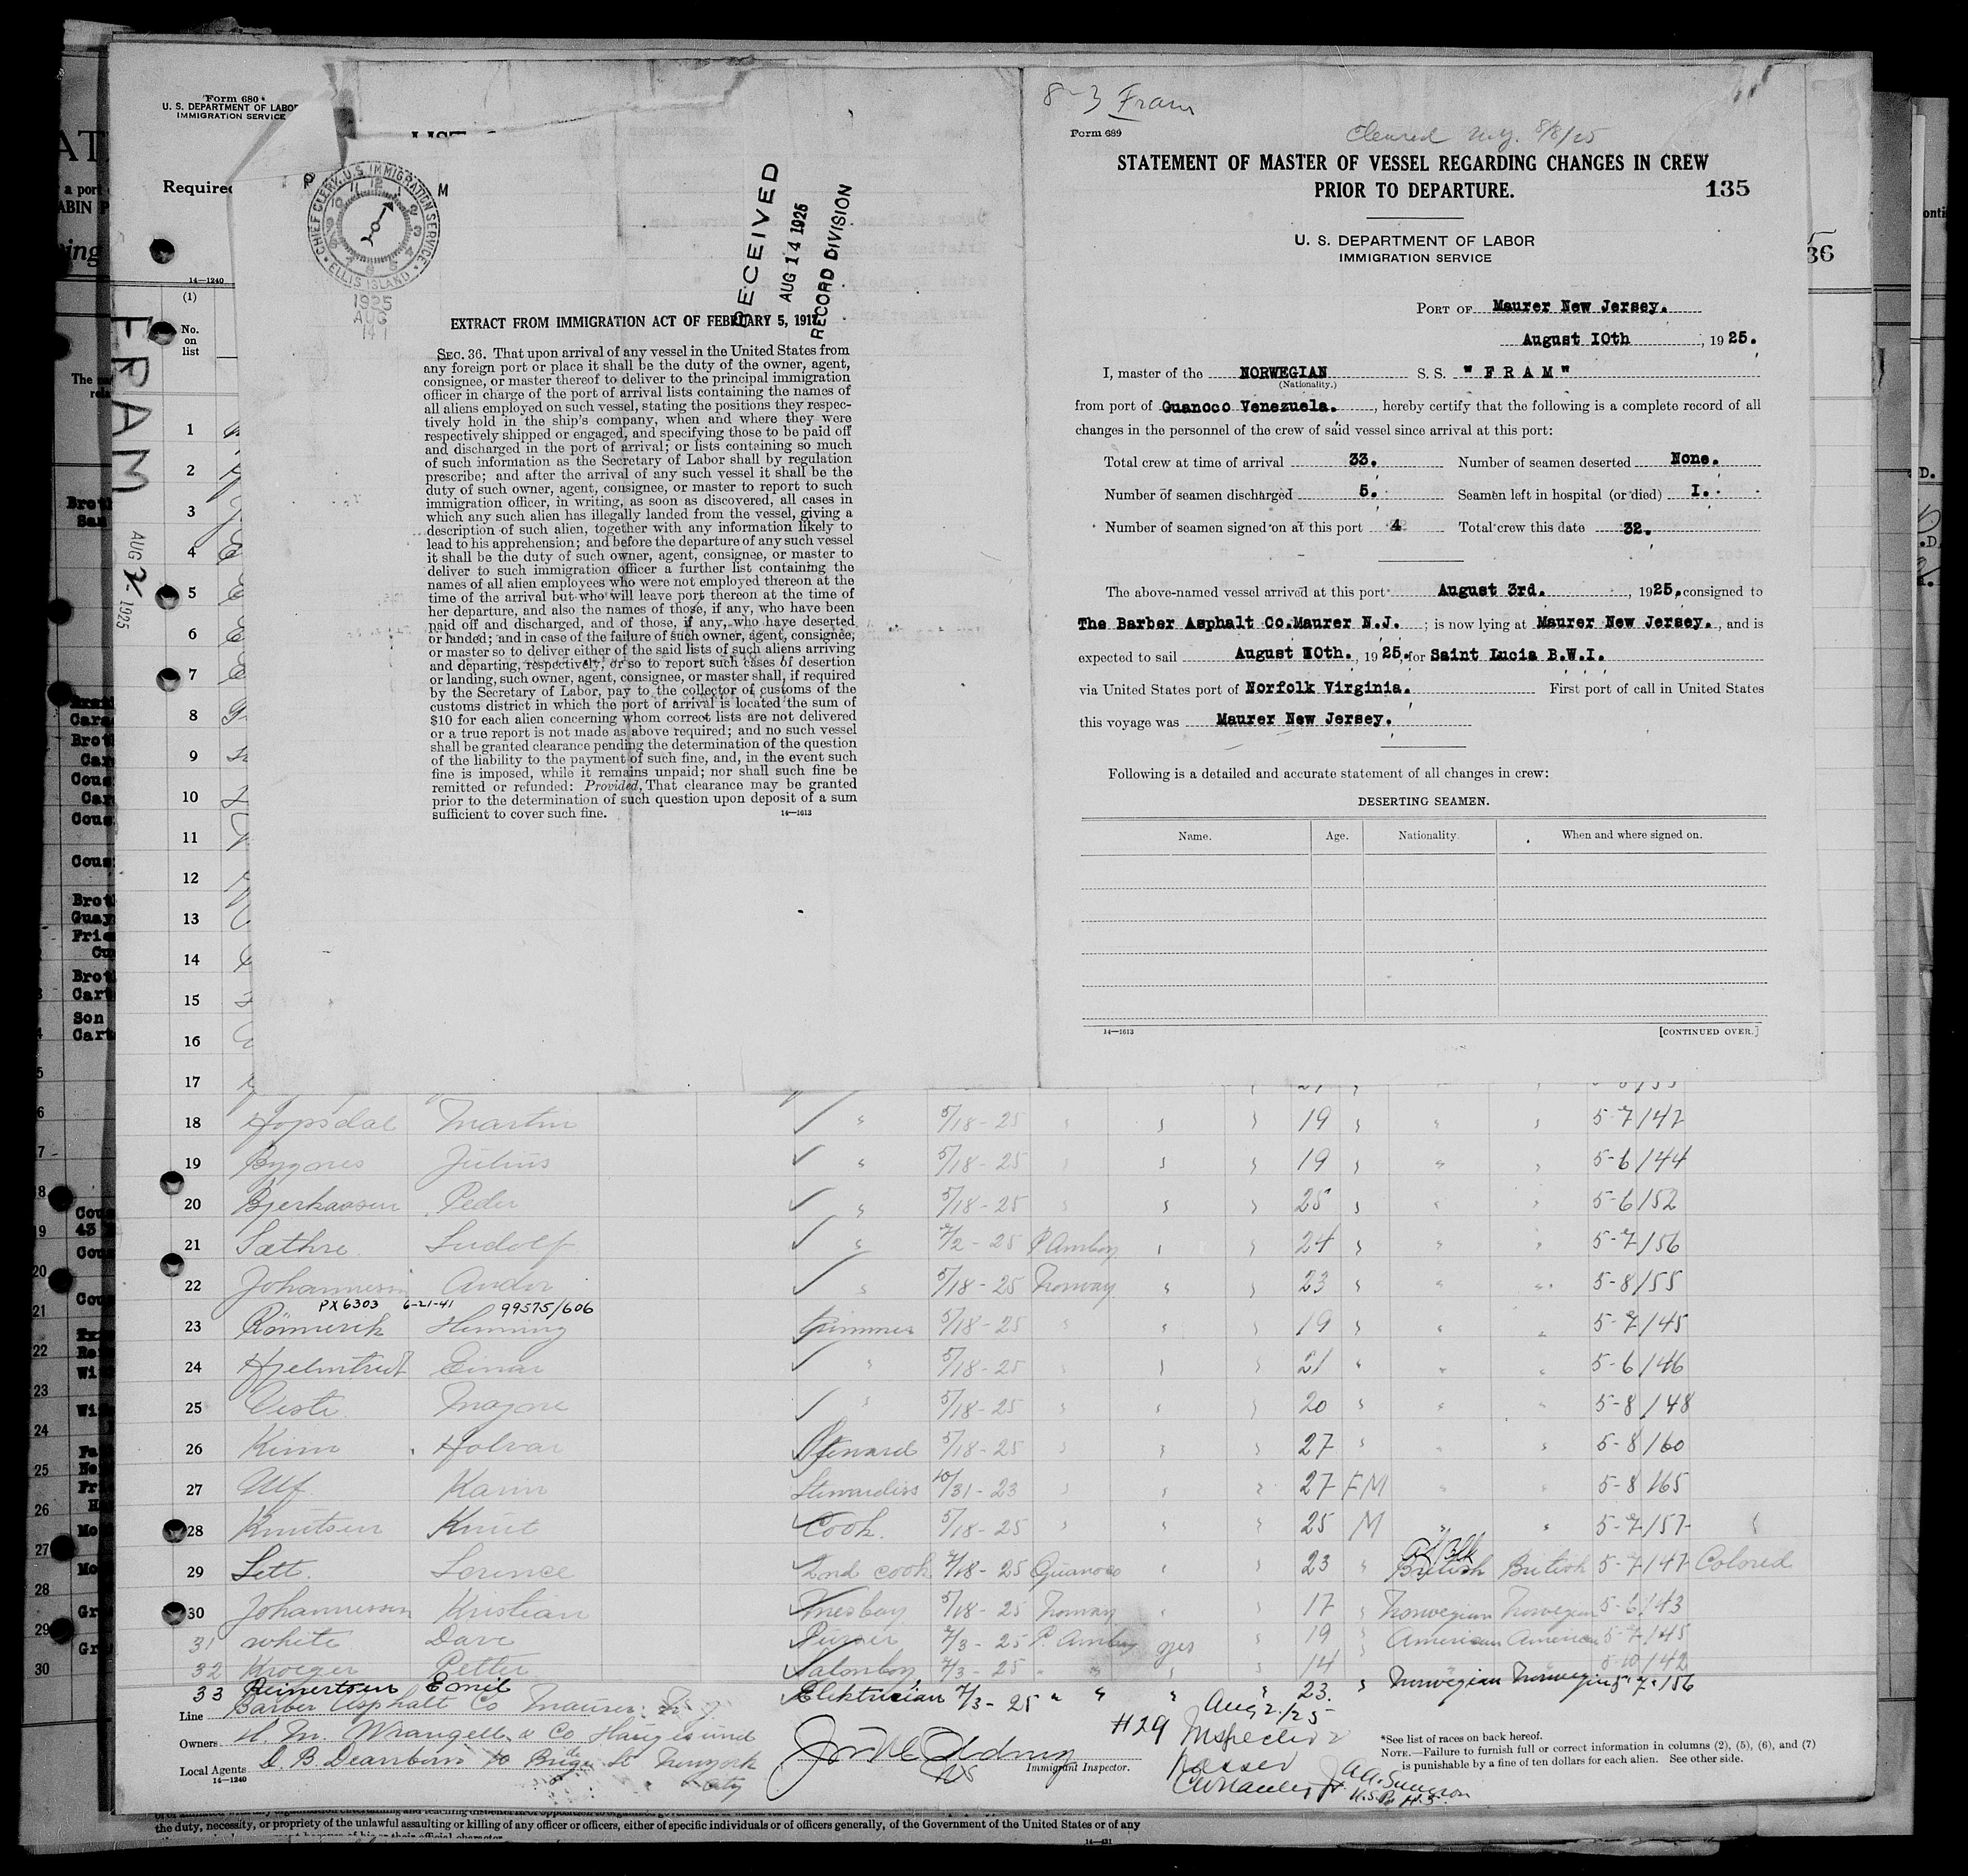 Form 680
U. S. DEPARTMENT OF LABOR
IMMIGRATION SERVICE
Required
14—1240
(1)
No.
on
list
FRAM
AUG 2 - 1925
CHIEF CLERK, U.S. IMMIGRATION SERVICE
ELLIS ISLAND
1925
AUG
14
RECEIVED
AUG 14 1925
RECORD DIVISION
EXTRACT FROM IMMIGRATION ACT OF FEBRUARY 5, 1917.
SEC. 36. That upon arrival of any vessel in the United States from
any foreign port or place it shall be the duty of the owner, agent,
consignee, or master thereof to deliver to the principal immigration
officer in charge of the port of arrival lists containing the names of
all aliens employed on such vessel, stating the positions they respec-
tively hold in the ship's company, when and where they were
respectively shipped or engaged, and specifying those to be paid off
and discharged in the port of arrival; or lists containing so much
of such information as the Secretary of Labor shall by regulation
prescribe; and after the arrival of any such vessel it shall be the
duty of such owner, agent, consignee, or master to report to such
immigration officer, in writing, as soon as discovered, all cases in
which any such alien has illegally landed from the vessel, giving a
description of such alien, together with any information likely to
lead to his apprehension; and before the departure of any such vessel
it shall be the duty of such owner, agent, consignee, or master to
deliver to such immigration officer a further list containing the
names of all alien employees who were not employed thereon at the
time of the arrival but who will leave port thereon at the time of
her departure, and also the names of those, if any, who have been
paid off and discharged, and of those, if any, who have deserted
or landed; and in case of the failure of such owner, agent, consignee,
or master so to deliver either of the said lists of such aliens arriving
and departing, respectively, or so to report such cases of desertion
or landing, such owner, agent, consignee, or master shall, if required
by the Secretary of Labor, pay to the collector of customs of the
customs district in which the port of arrival is located the sum of
$10 for each alien concerning whom correct lists are not delivered
or a true report is not made as above required; and no such vessel
shall be granted clearance pending the determination of the question
of the liability to the payment of such fine, and, in the event such
fine is imposed, while it remains unpaid; nor shall such fine be
remitted or refunded: Provided, That clearance may be granted
prior to the determination of such question upon deposit of a sum
sufficient to cover such fine.
14—1613
8-3 Fram
Form 689
Cleared N.Y. 8/8/25
STATEMENT OF MASTER OF VESSEL REGARDING CHANGES IN CREW
PRIOR TO DEPARTURE.
135
U. S. DEPARTMENT OF LABOR
IMMIGRATION SERVICE
PORT OF Maurer New Jersey.
August IOth , 1925.
I, master of the NORWEGIAN S. S. "FRAM"
(Nationality.)
from port of Guanoco Venezuela. , hereby certify that the following is a complete record of all
changes in the personnel of the crew of said vessel since arrival at this port:
Total crew at time of arrival 33. Number of seamen deserted None.
Number of seamen discharged 5. Seamen left in hospital (or died) I.
Number of seamen signed on at this port 4 Total crew this date 32.
The above-named vessel arrived at this port August 3rd. , 1925, consigned to
The Barber Asphalt Co. Maurer N.J. ; is now lying at Maurer New Jersey. , and is
expected to sail August IOth. , 1925, for Saint Lucia B.W.I.
via United States port of Norfolk Virginia. First port of call in United States
this voyage was Maurer New Jersey.
Following is a detailed and accurate statement of all changes in crew:
DESERTING SEAMEN.
Name. Age. Nationality. When and where signed on.
14—1613 [CONTINUED OVER.]
36
1
2
3
4
5
6
7
8
9
10
11
12
13
14
15
16
17
18 Hopsdal Martin 5/18-25 19 5-7/147
19 Bygnes Julius 5/18-25 19 5-6/144
20 Bjerkaasen Peder 5/18-25 25 5-6/152
21 Sæthre Ludolf 7/2-25 P Amboy 24 5-7/156
22 Johannesen 5/18-25 Norway 23 5-8/55
PX6303 6-21-41 99575/606
23 Henning Trimmer 5/18-25 19 5-7/145
24 Einar 5/18-25 21 5-6/146
25 Magne 5/18-25 20 5-8/148
26 Kinn Steward 5/18-25 27 5-8/160
27 Ulf Karin Stewardess 10/31-23 27 F M 5-8 165
28 Knutsen Knut Cook. 5/18-25 25 M 5-7/157
29 Lett. Lorence 2nd cook 7/18-25 Guanoco 23 British British 5-7/147 Colored
30 Johannessen Kristian Messboy 5/18-25 Norway 17 Norwegian Norwegian 5-6/143
31 White Dave 7/3-25 P. Amboy yes 19 American American 5-7/145
32 Kroeger Petter Salonboy 7/3-25 14 5-10/142
33 Reinertsen Emil Elektrician 7/3-25 23. Norwegian Norwegian 5-7-156
Line Barber Asphalt Co Maurer N.J.
Owners H. M. Wrangell & Co Haugesund
Local Agents D. B. Dearborn New York
City
14—1240
Immigrant Inspector.
#29
Aug 2/25
Inspected
Passed
U.S.P.H.S.
*See list of races on back hereof.
NOTE.—Failure to furnish full or correct information in columns (2), (5), (6), and (7)
is punishable by a fine of ten dollars for each alien. See other side.
the duty, necessity, or propriety of the unlawful assaulting or killing of any officer or officers, either of specific individuals or of officers generally, of the Government of the United States or of any